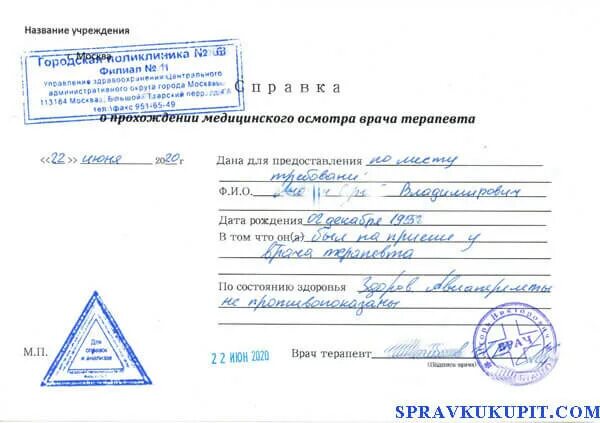 Название учреждения
г. Москва
Городская поликлиника №
Филиал № 1
Управление здравоохранения Центрального
административного округа города Москвы
113184 Москва, Большой Татарский пер.,
тел./факс 951-65-49
Справка
о прохождении медицинского осмотра врача терапевта
«22» июня 2020г
Дана для предоставления по месту
требовани
Ф.И.О. Владимирович
Дата рождения 02 декабря
В том что он(а) был на приеме у
врача терапевта
По состоянию здоровья Здоров. Авиаперелеты
не противопоказаны
Для
справок
и анализов
М.П.
22 ИЮН 2020
Врач терапевт
(Подпись врача)
Игорь Викторович
ВРАЧ
SPRAVKUKUPIT.COM